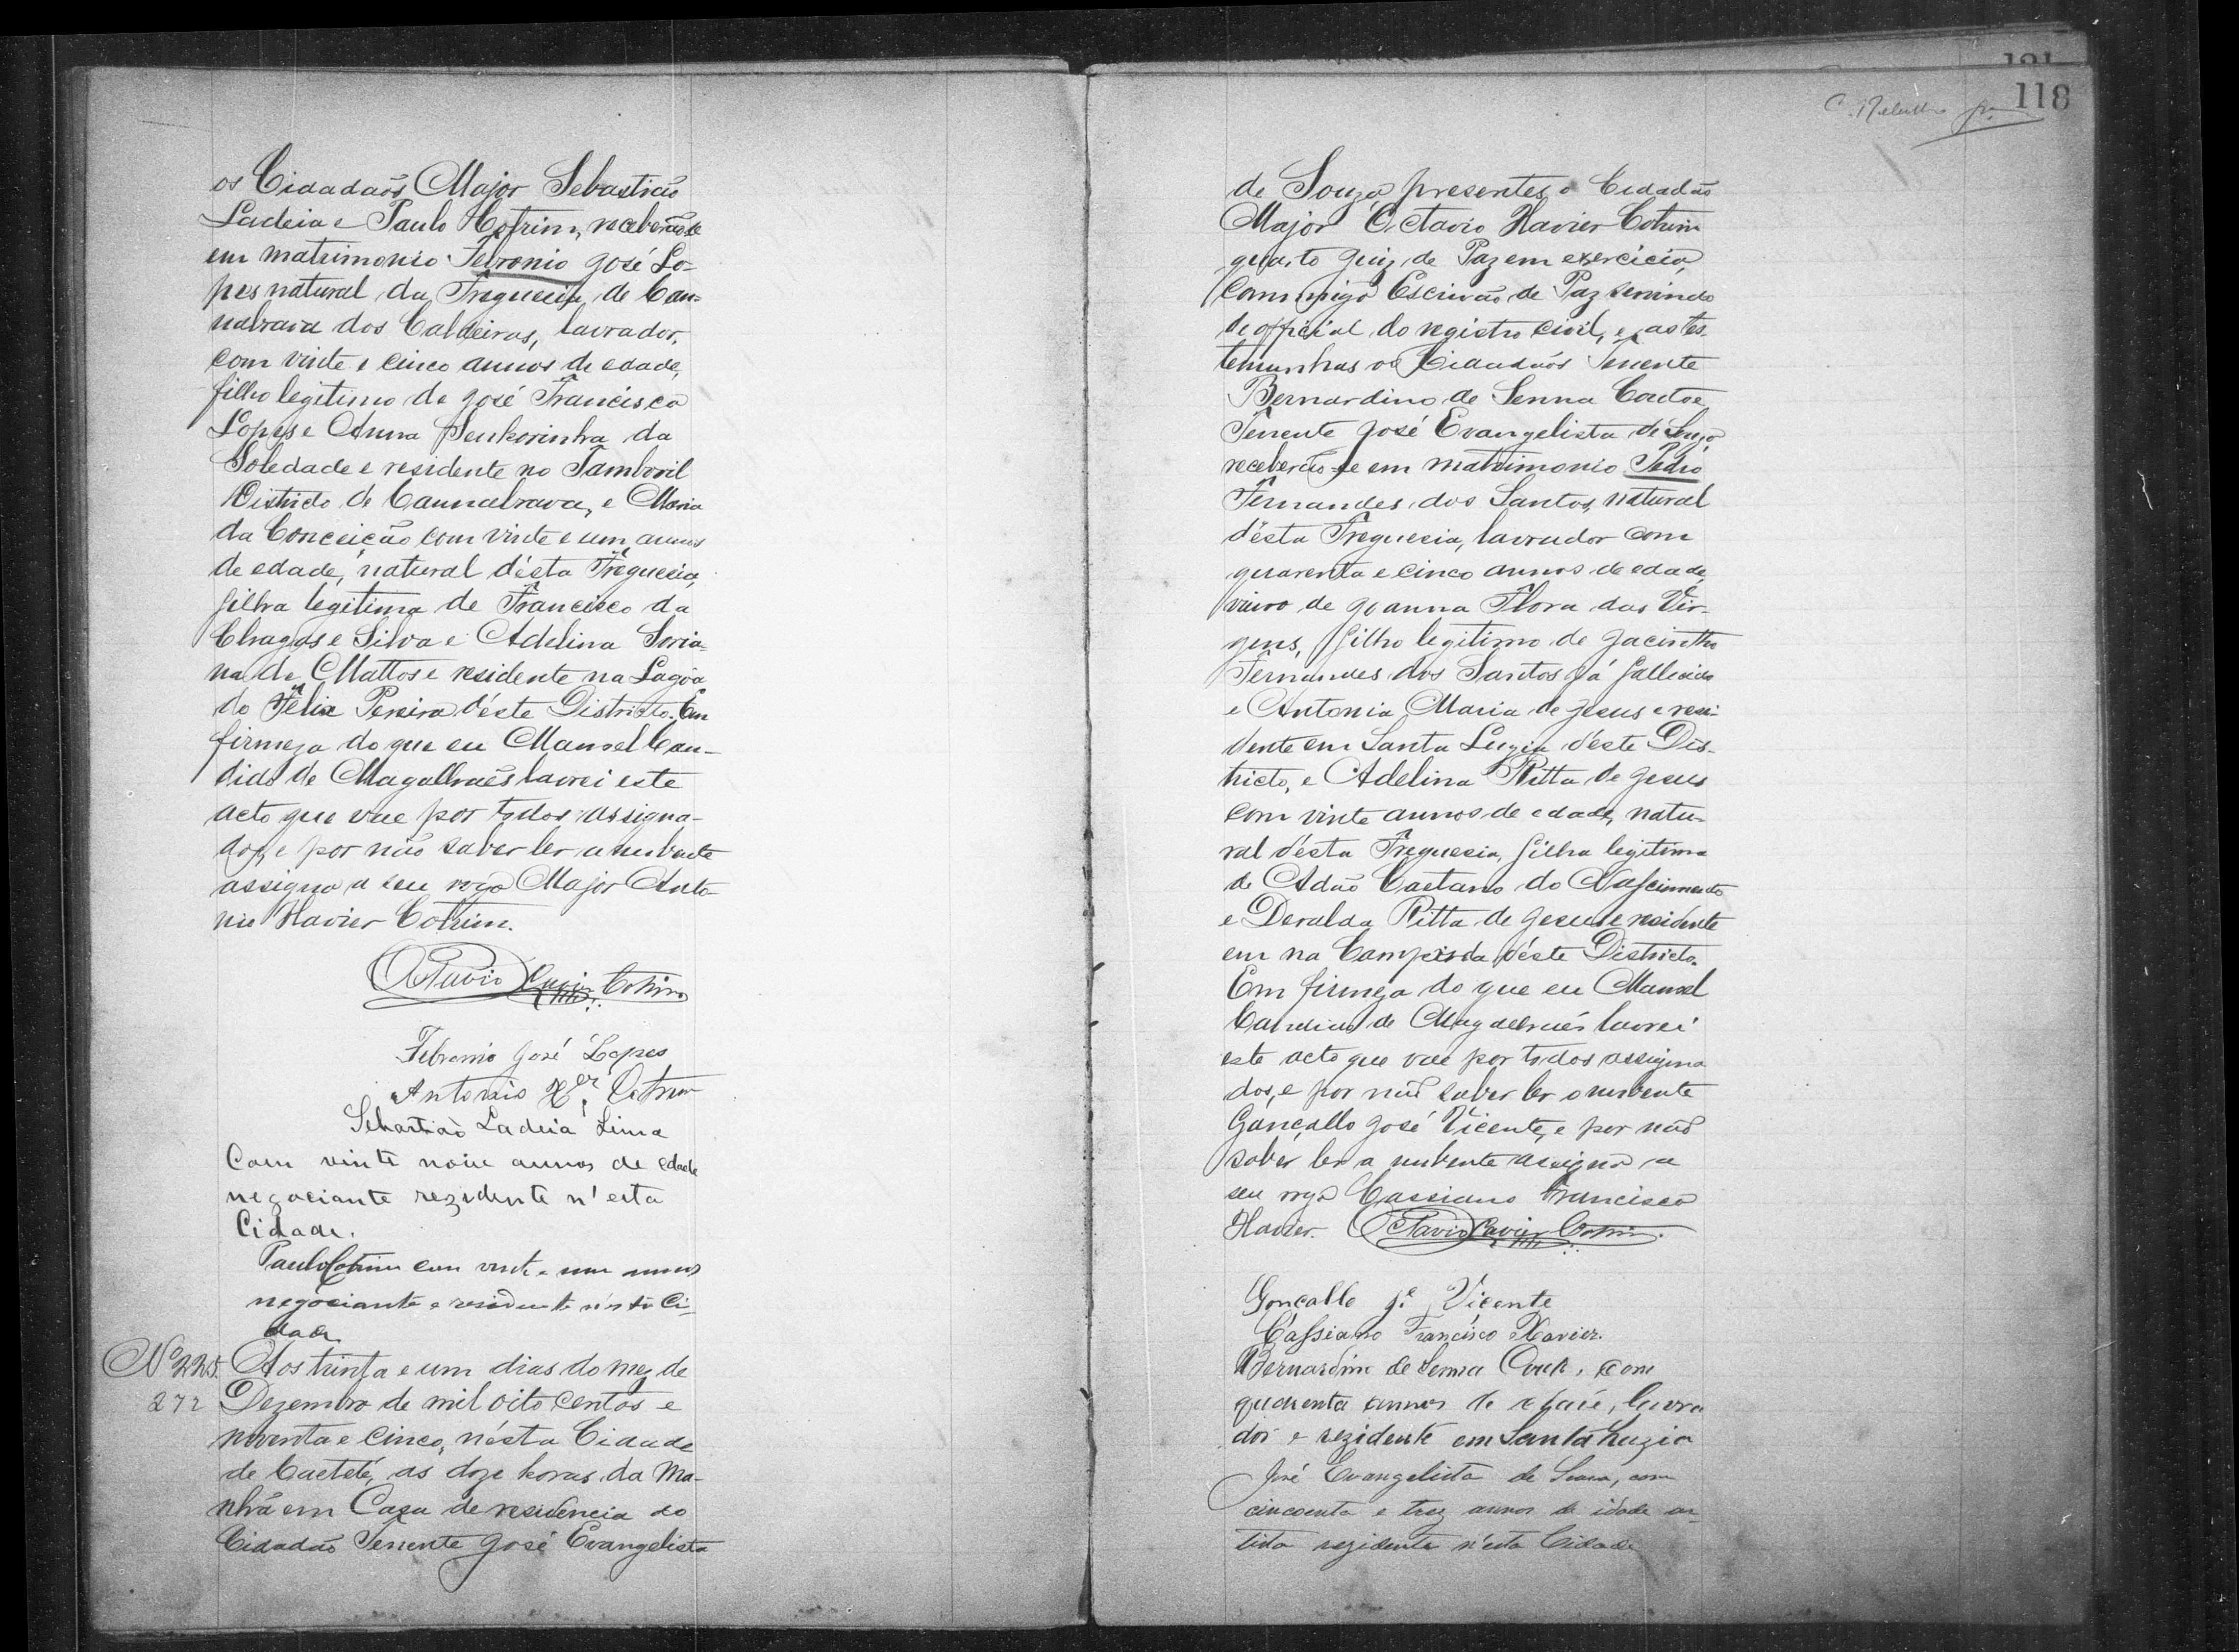 os Cidadaõs Major Sebastião
Ladeia e Paulo Cotrim, receberão-se
em matrimonio Febronio José Lo-
pes natural da Freguezia de Can-
nabrava dos Caldeiras, lavrador,
com vinte e cinco annos de edade,
filho legitimo de José Francisco
Lopes e Anna Senhorinha da
Soledade e residente no Tamboril
Districto de Cannabrava, e Maria
da Conceição com vinte e um annos
de edade, natural d'ésta Freguezia,
filha legitima de Francisco da
Chagas e Silva e Adelina Soria-
na de Mattos e residente na Lagôa
do Felix Pereira d'éste Districto. Em
firmeza do que eu Manoel Can-
dido de Magalhaẽs lavrei este
acto que vae por todos assigna-
dos, e por não saber ler a nubente
assigna a seu rogo Major Anto
nio Xavier Cotrim.
Octavio Xavier Cotrim
Febronio José Lopes
Antonio Xer Cotrim
Sebastião Ladeia Lima
Com vinte nove annos de edade
negociante rezidente n'esta
Cidade.
Paulo Cotrim com vinte e um annos
negociante e residente n'esta Ci-
dade
Nº 225. Aos trinta e um dias do mez de
272 Dezembro de mil oito centos e
noventa e cinco, n'ésta Cidade
de Caeteté, as doze horas da ma-
nhã em Casa de residencia do
Cidadão Tenente José Evangelista
118
de Souza, presentes o Cidadão
Major Octavio Xavier Cotrim
quarto Juiz de Paz em exercicio,
commigo Escrivão de Paz servindo
de official do registro civil, e as tes-
temunhas os Cidadaõs Tenente
Bernardino de Senna Couto e
Tenente José Evangelista de Souza
receberão-se em matrimonio Pedro
Fernandes dos Santos, natural
d'ésta Freguezia, lavrador com
quarenta e cinco annos de edade,
viuvo de Joanna Flora das Vir-
gens, filho legitimo de Jacintho
Fernandes dos Santos já fallecido
e Antonia Maria de Jesus e resi-
dente em Santa Luzia d'éste Dis-
tricto, e Adelina Ritta de Jesus
com vinte annos de edade, natu-
ral d'ésta Freguezia, filha legitima
de Adão Caetano do Nascimento
e Deralda Ritta de Jesus e residente
em na Campina d'éste Districto.
Em firmeza do que eu Manoel
Candido de Magalhaẽs lavrei
este acto que vae por todos assigna
dos, e por não saber ler o nubente
Gonçallo José Vicente, e por não
saber ler a nubente assigna a
seu rogo Cassiano Francisco
Xavier. Octavio Xavier Cotrim.
Gonçallo Je Vicente
Cassiano Francisco Xavier.
Bernardino de Senna Couto, com
quarenta annos de idade, lavra
dor e rezidente em Santa Luzia
José Evangelista de Souza, com
cincoenta e trez annos de idade ar-
tista rezidente n'esta Cidade